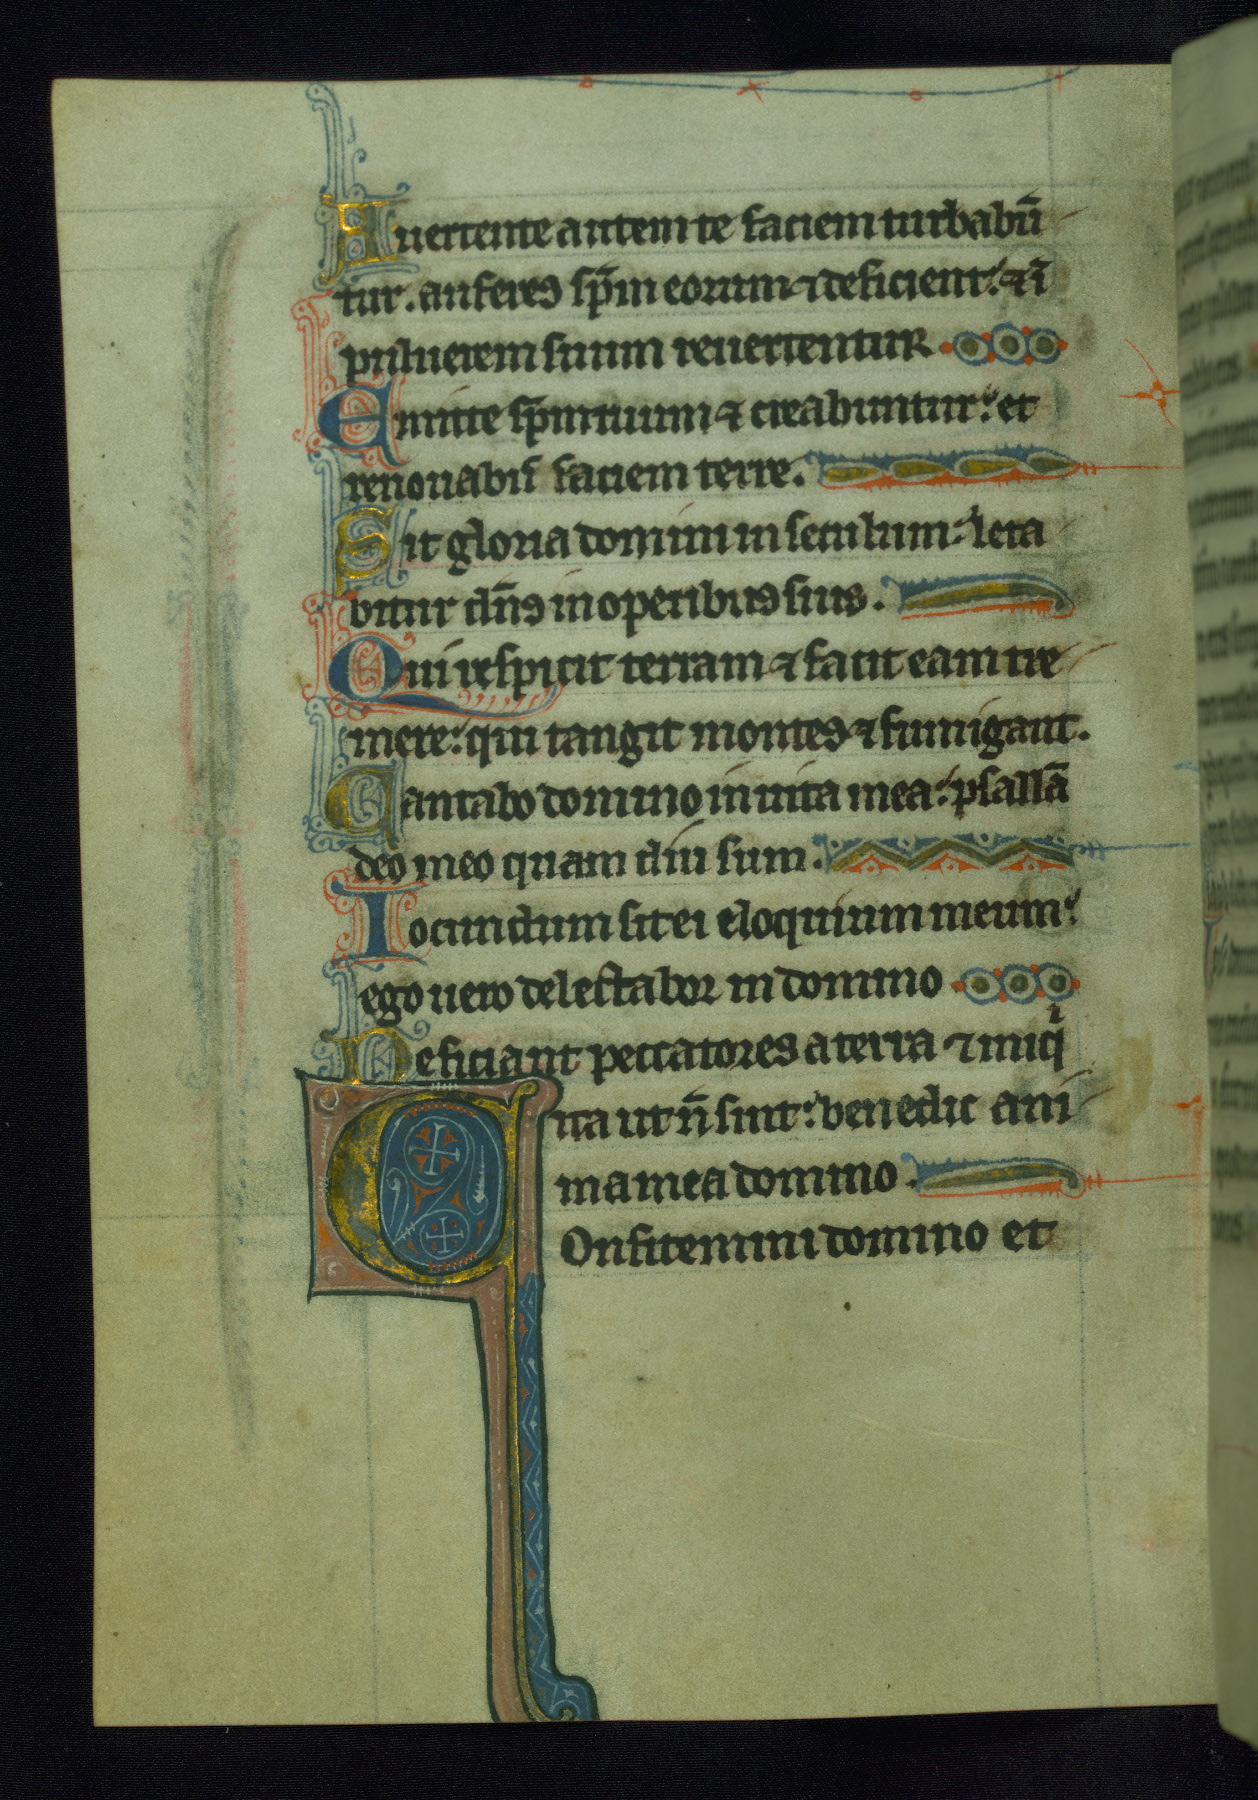 Auertente autem te faciem turbabū
tur. auferes sp̄m eorum ⁊ deficient: ⁊ ī
puluerem suum reuertentur
Emitte sp̄m tuum ⁊ creabuntur: et
renouabis faciem terre.
Sit gloria domini in seculum: leta
bitur dn̄s in operibus suis.
Qui respicit terram ⁊ facit eam tre
mere: qui tangit montes ⁊ fumigant.
Cantabo domino in uita mea: psallā
deo meo quam diu sum.
Iocundum sit ei eloquium meum:
ego uero delectabor in domino
Deficiant peccatores a terra ⁊ iniqⁱ
ita ut n̄ sint: benedic ani
ma mea domino.
COnfitemini domino et